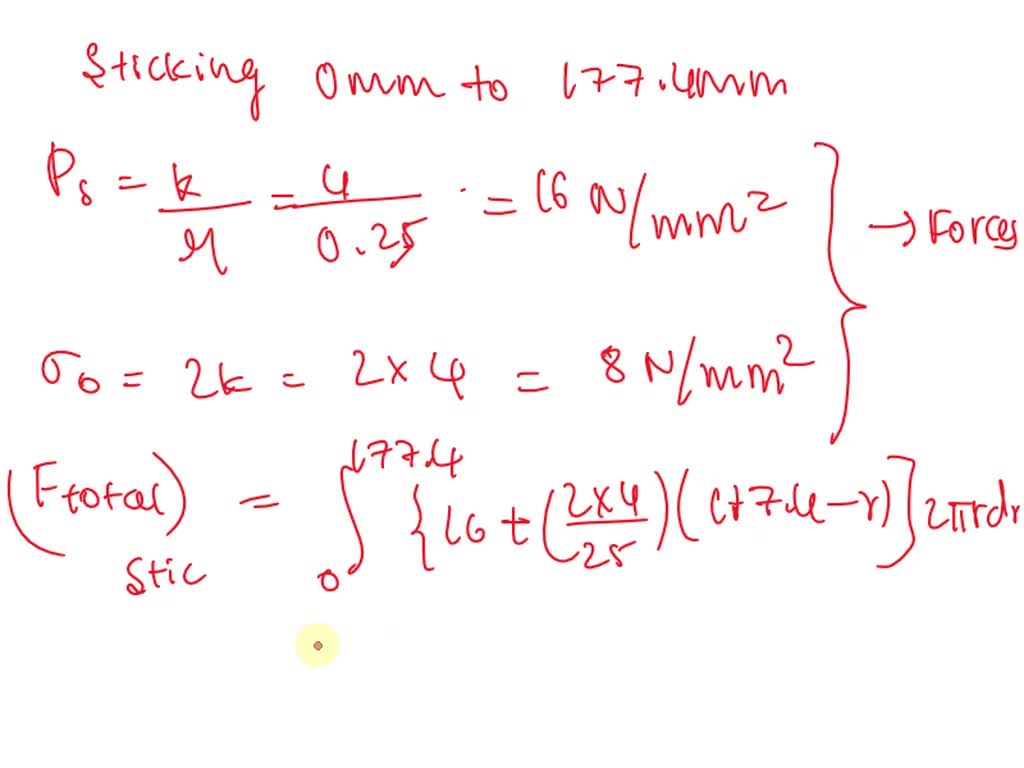 Sticking 0mm to 177.4mm
Ps = k/μ = 4/0.25 = 16 N/mm² } → Forces
σo = 2k = 2×4 = 8 N/mm²
(Ftotal)stic = ∫₀^177.4 {16 + (2×4/25)(177.4-r)] 2πrdr